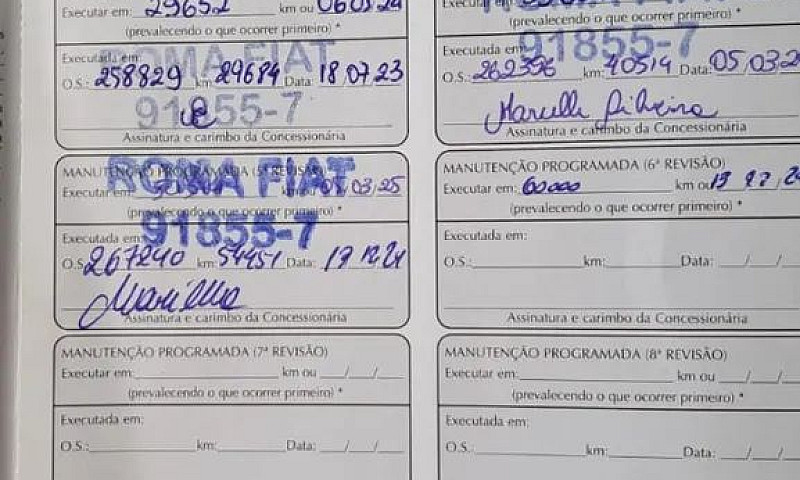 Executar em: 29652 km ou 06 03 24
(prevalecendo o que ocorrer primeiro) *
Executada em:
ROMA FIAT
O.S.: 258829 km 29684 Data: 18 07 23
91855-7
Assinatura e carimbo da Concessionária
Executar em:
(prevalecendo o que ocorrer primeiro) *
Executada em:
91855-7
O.S.: 262396 km: 40514 Data: 05/03/2
Assinatura e carimbo da Concessionária
MANUTENÇÃO PROGRAMADA (5ª REVISÃO)
ROMA FIAT
Executar em: km ou 03/25
(prevalecendo o que ocorrer primeiro) *
91855-7
Executada em:
O.S 267240 km: 54451 Data: 17 12 24
Assinatura e carimbo da Concessionária
MANUTENÇÃO PROGRAMADA (6ª REVISÃO)
Executar em: 60000 km ou
(prevalecendo o que ocorrer primeiro) *
Executada em:
O.S.: km: Data: / /
Assinatura e carimbo da Concessionária
MANUTENÇÃO PROGRAMADA (7ª REVISÃO)
Executar em: km ou / /
(prevalecendo o que ocorrer primeiro) *
Executada em:
O.S.: km: Data: / /
MANUTENÇÃO PROGRAMADA (8ª REVISÃO)
Executar em: km ou / /
(prevalecendo o que ocorrer primeiro) *
Executada em:
O.S.: km: Data: / /